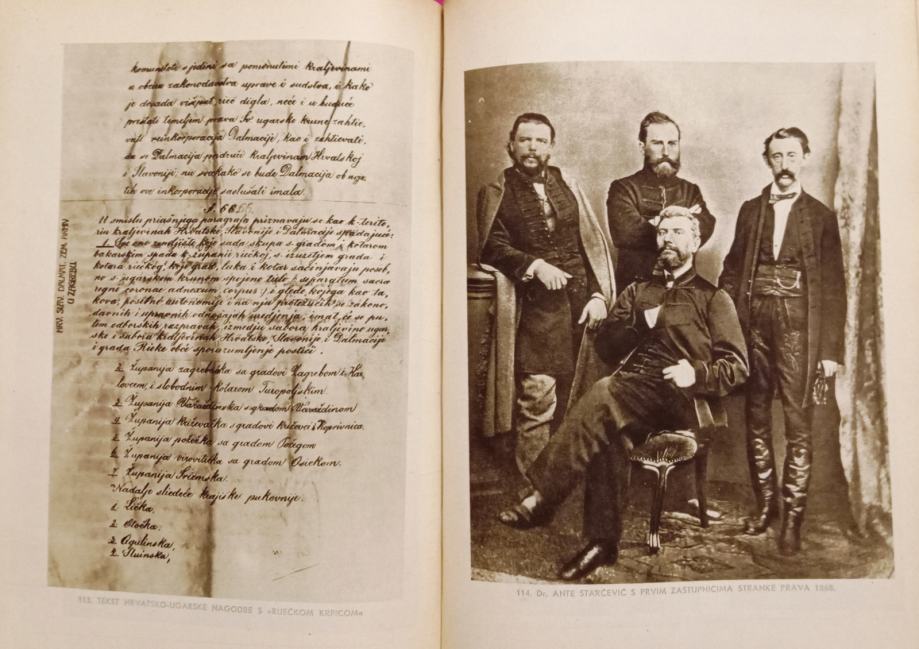 komunitete sjedini sa pomenutimi kraljevinami
u obziru zakonodavstva uprave i sudstva, i kako
je dosada višput rieč digla, neće i u buduće
prestati temeljem prava Sv ugarske krune zahtie-
vati reinkorporaciju Dalmacije, kao i zahtievati,
da se Dalmacija pridruži kraljevinam Hrvatskoj
i Slavoniji; nu svakako se bude Dalmacija ob uvje
tih ove inkorporacije saslušati imala.
§. 66
U smislu prijašnjega paragrafa priznavaju se kao k terito-
riu kraljevinah Hrvatske, Slavonije i Dalmacije spadajuće:
1. Sve ono zemljište, koje sada skupa s gradom i kotarom
bakarskim spada k županii riečkoj, s izuzetjem grada i
kotara riečkog, koji grad, luka i kotar sačinjavaju poseb-
no s ugarskom krunom spojeno tielo (separatum sacrae
regni coronae adnexum corpus) i glede kojega kao ta-
kova, posebne autonomije i na nju protežućih se zakono-
davnih i upravnih odnošajah uredjenja, imat će se pu-
tem odborskih razpravah, izmedju sabora kraljevine ugar-
ske i sabora kraljevinah Hrvatske, Slavonije i Dalmacije
i grada Rieke obće sporazumljenje postići.
2. Županija zagrebačka sa gradovi Zagrebom i Kar-
lovcem, i slobodnim kotarom Turopoljskim
3. Županija Varaždinska s gradom Varaždinom
4. Županija križevačka s gradovi Križevci i Koprivnica.
5. Županija požežka sa gradom Požegom
6. Županija virovitička sa gradom Osiekom.
7. Županija Sriemska.
Nadalje sliedeće krajiške pukovnije.
1. Lička.
2. Otočka.
3. Ogulinska,
4. Sluinska,
HRV. SLAV. DALMAT. ZEM. ARKIV
U ZAGREBU.
113. TEKST HRVATSKO-UGARSKE NAGODBE S »RIJEČKOM KRPICOM«
114. Dr. ANTE STARČEVIĆ S PRVIM ZASTUPNICIMA STRANKE PRAVA 1868.